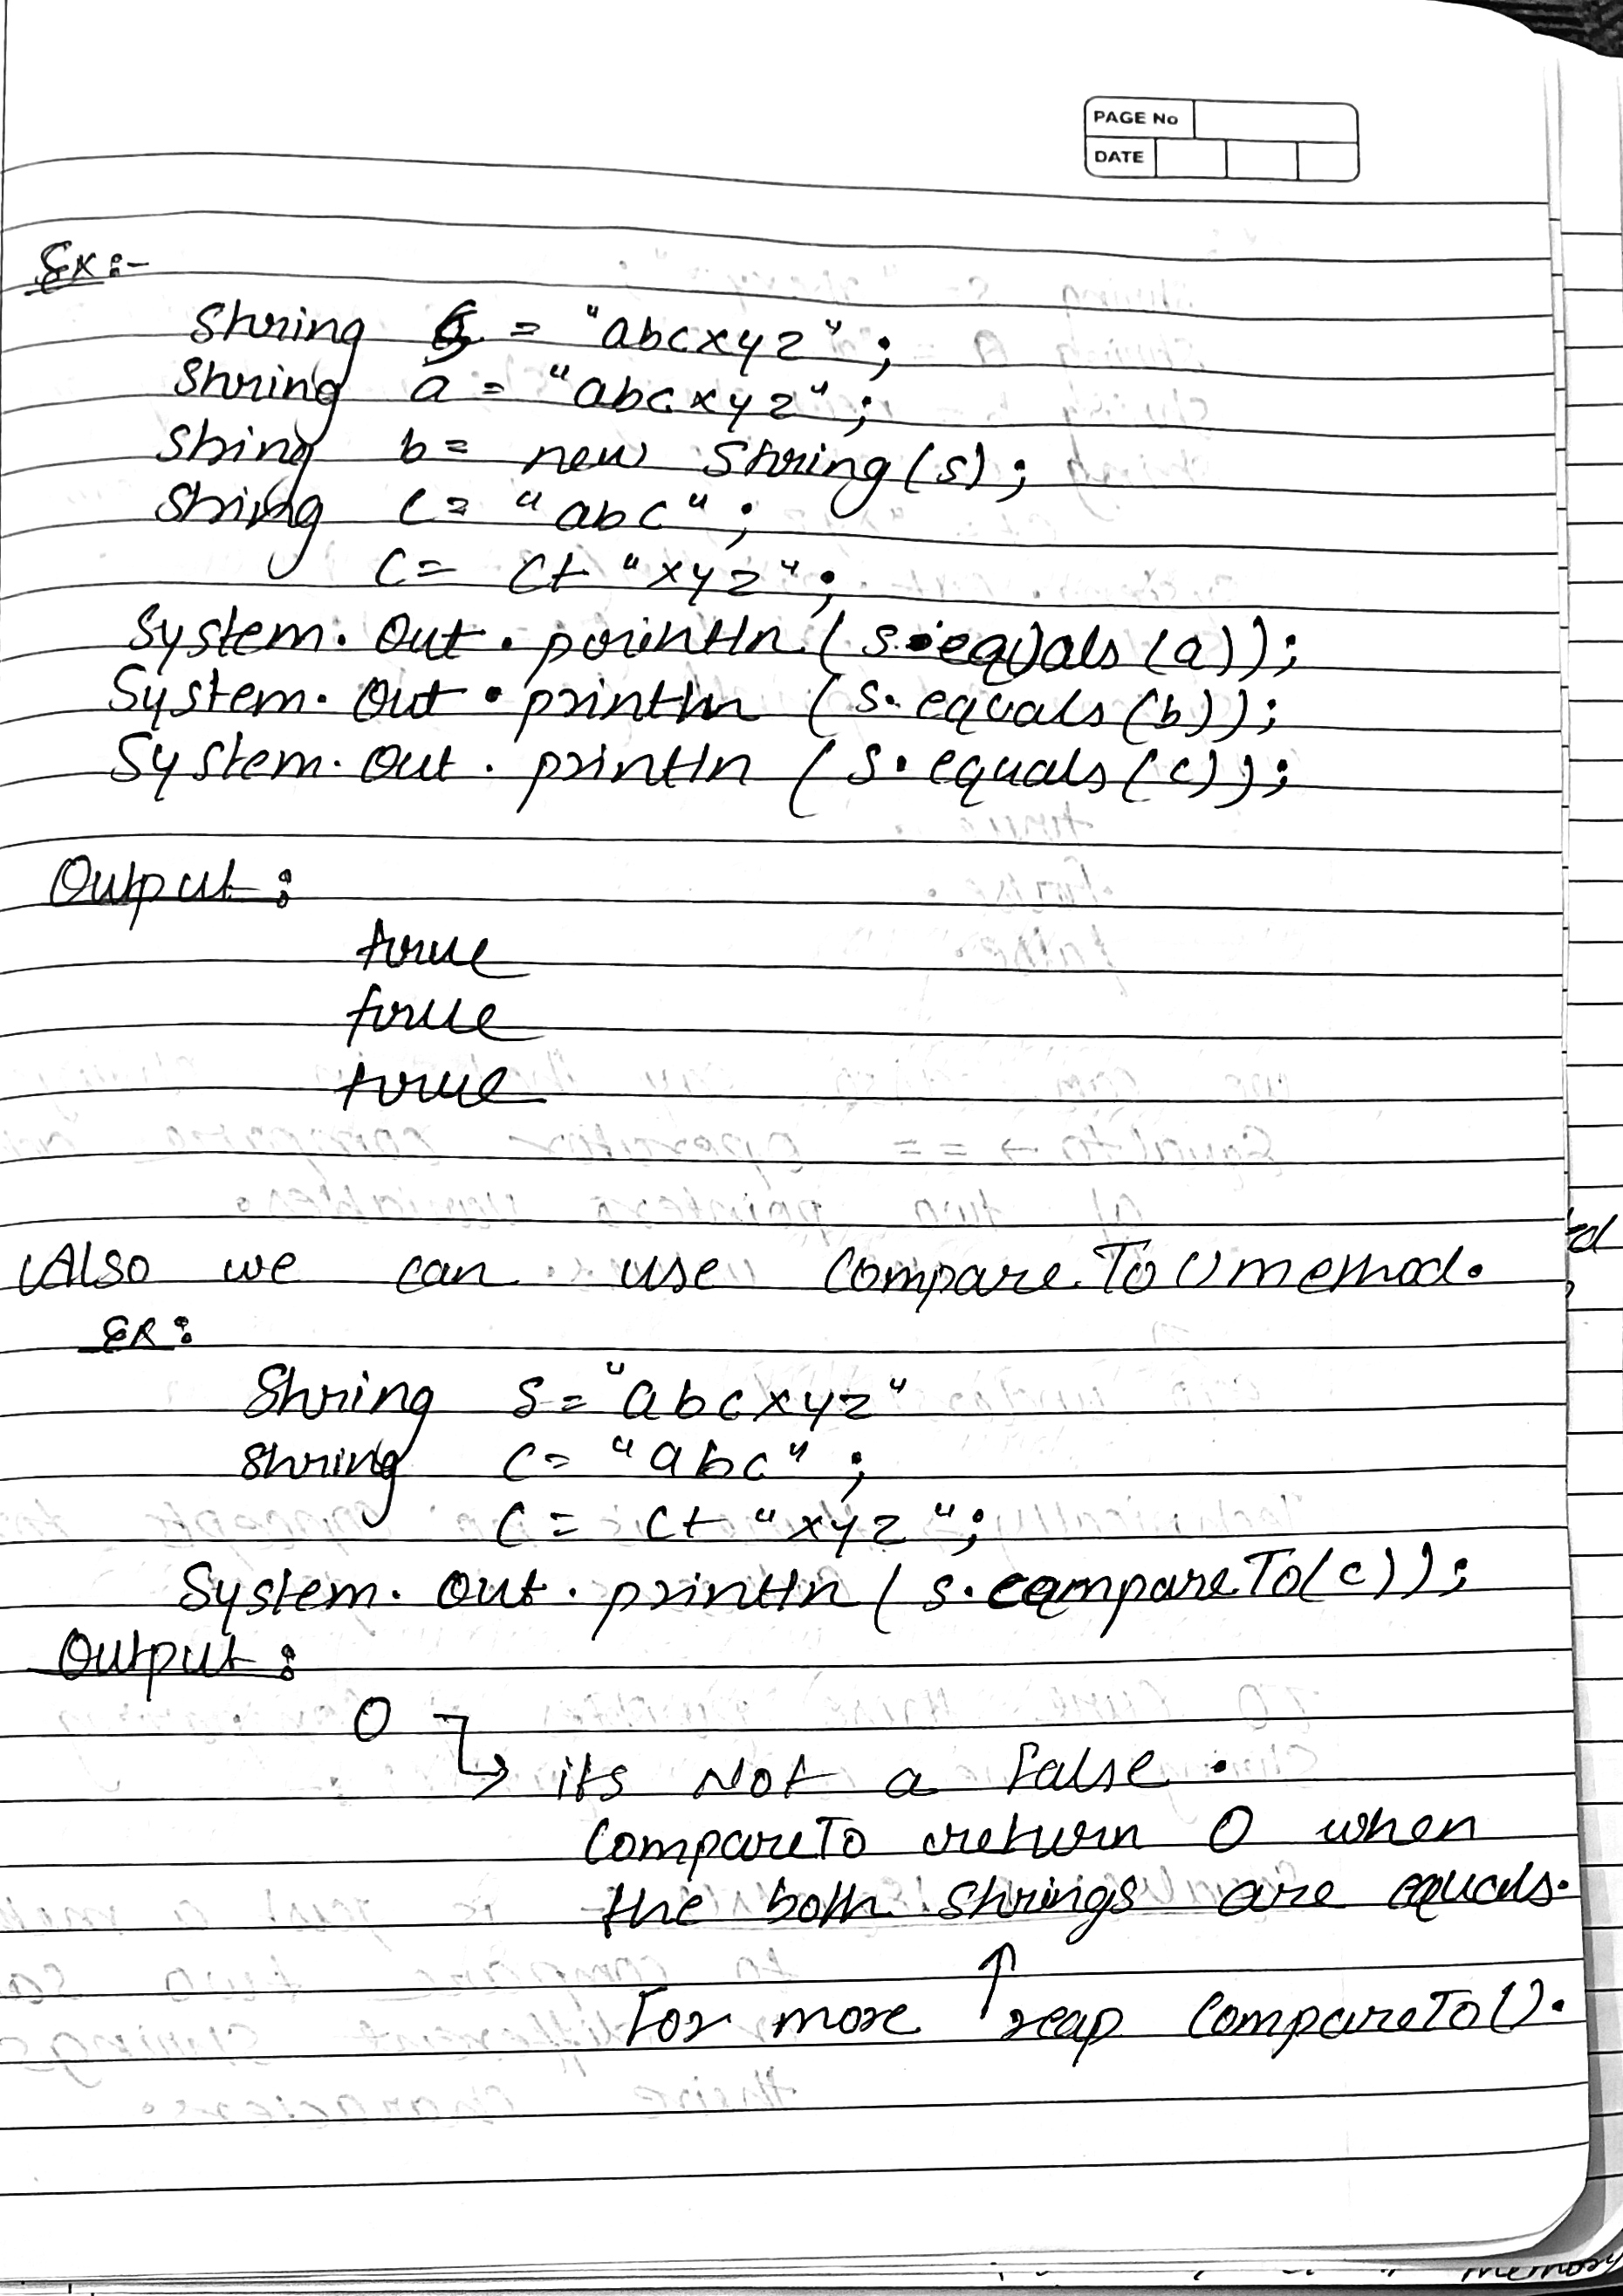 PAGE No
DATE
Ex:-
String s = "abcxyz";
String a = "abcxyz";
String b = new String(s);
String c = "abc";
c = c+ "xyz";
System.out.println(s.equals(a));
System.out.println(s.equals(b));
System.out.println(s.equals(c));
Output:
true
true
true
Also we can use compareTo() method.
Ex:
String s = "abcxyz"
String c = "abc";
c = c+ "xyz";
System.out.println(s.compareTo(c));
Output:
0
its Not a false.
CompareTo return 0 when
the both strings are equals.
For more reap CompareTo().
memory